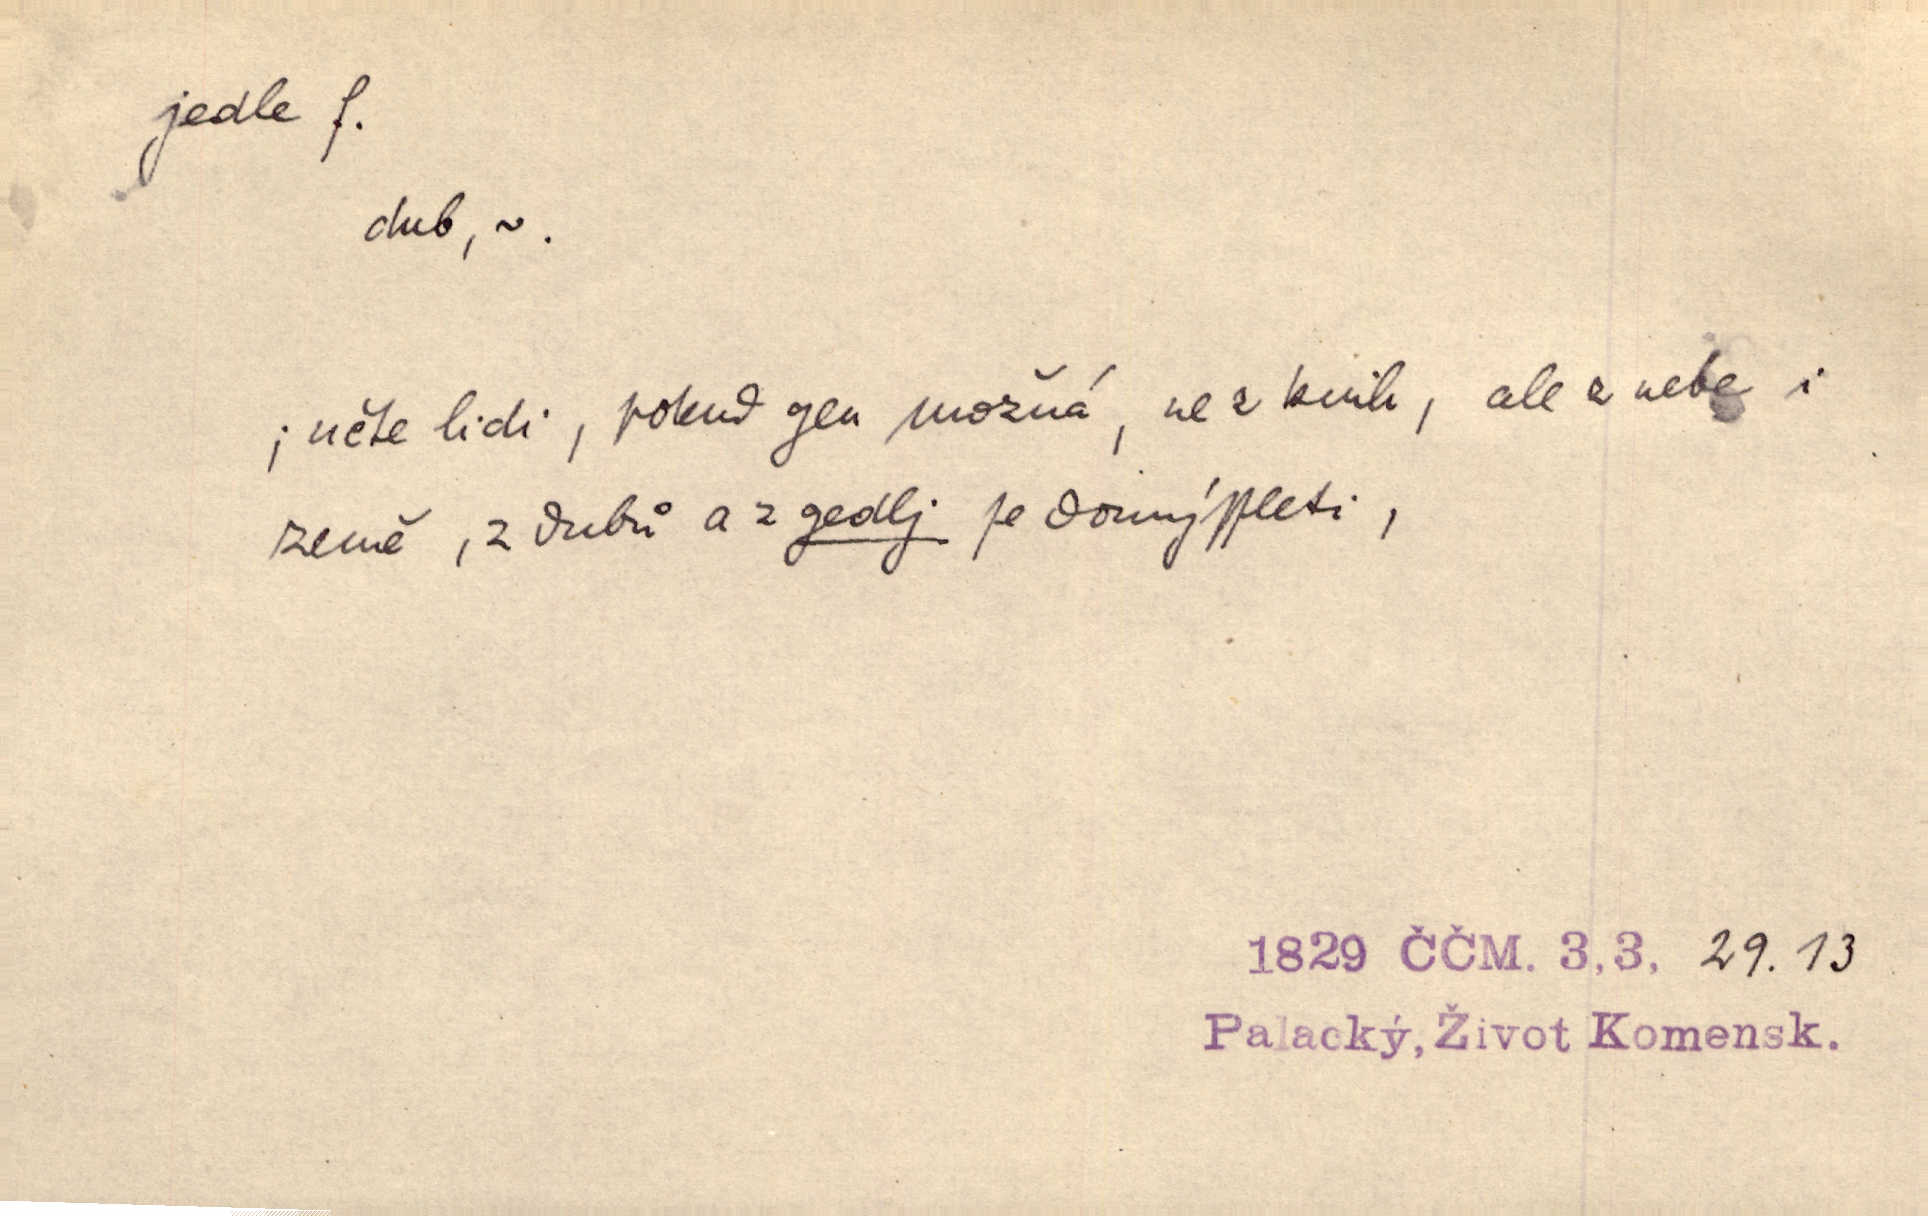 jedle f.
dub, ~.
; učte lidi, pokud gen možná, ne z knih, ale z nebe i
země, z dubů a z gedlj
1829 ČČM. 3,3, 29.13
Palacký, Život Komensk.